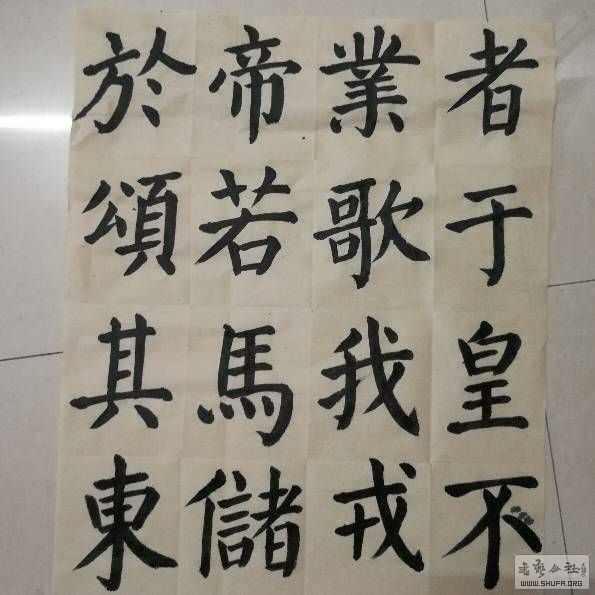 者于皇不
業歌我戎
帝若馬儲
於頌其東
WWW.SHUFA.ORG